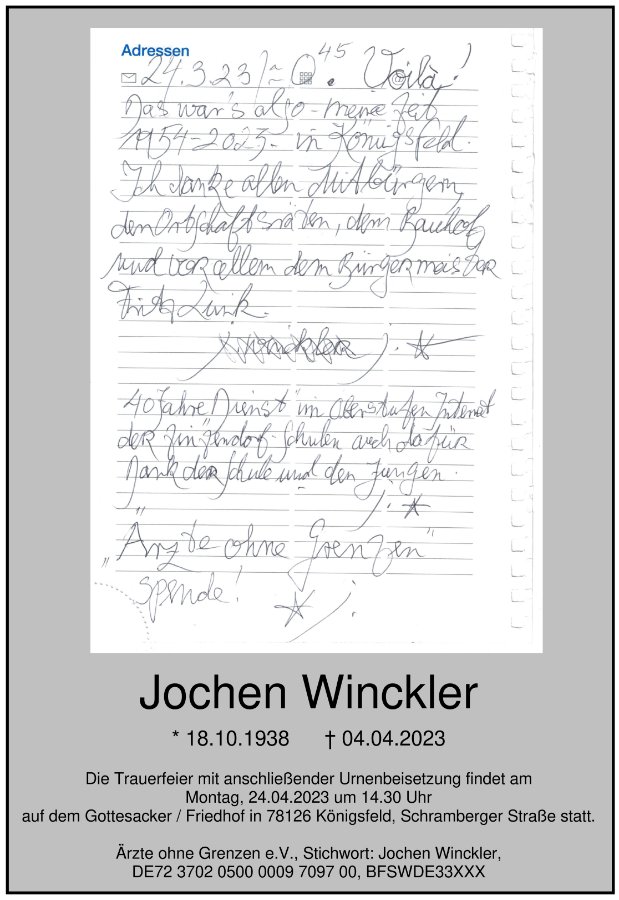 Adressen
24.3.23 45 Voilà!
Das war's also - meine Zeit
1954-2023 - in Königsfeld.
Ich danke allen Mitbürgern,
den Ortschaftsräten, dem Bauhof
und vor allem dem Bürgermeister
Fritz Link.
Winckler
40 Jahre "Dienst" im Oberstufen Internat
der Zinzendorf-Schulen auch dafür
Dank der Schule und den Jungen.
"Ärzte ohne Grenzen"
Spende!
Jochen Winckler
* 18.10.1938 † 04.04.2023
Die Trauerfeier mit anschließender Urnenbeisetzung findet am
Montag, 24.04.2023 um 14.30 Uhr
auf dem Gottesacker / Friedhof in 78126 Königsfeld, Schramberger Straße statt.
Ärzte ohne Grenzen e.V., Stichwort: Jochen Winckler,
DE72 3702 0500 0009 7097 00, BFSWDE33XXX